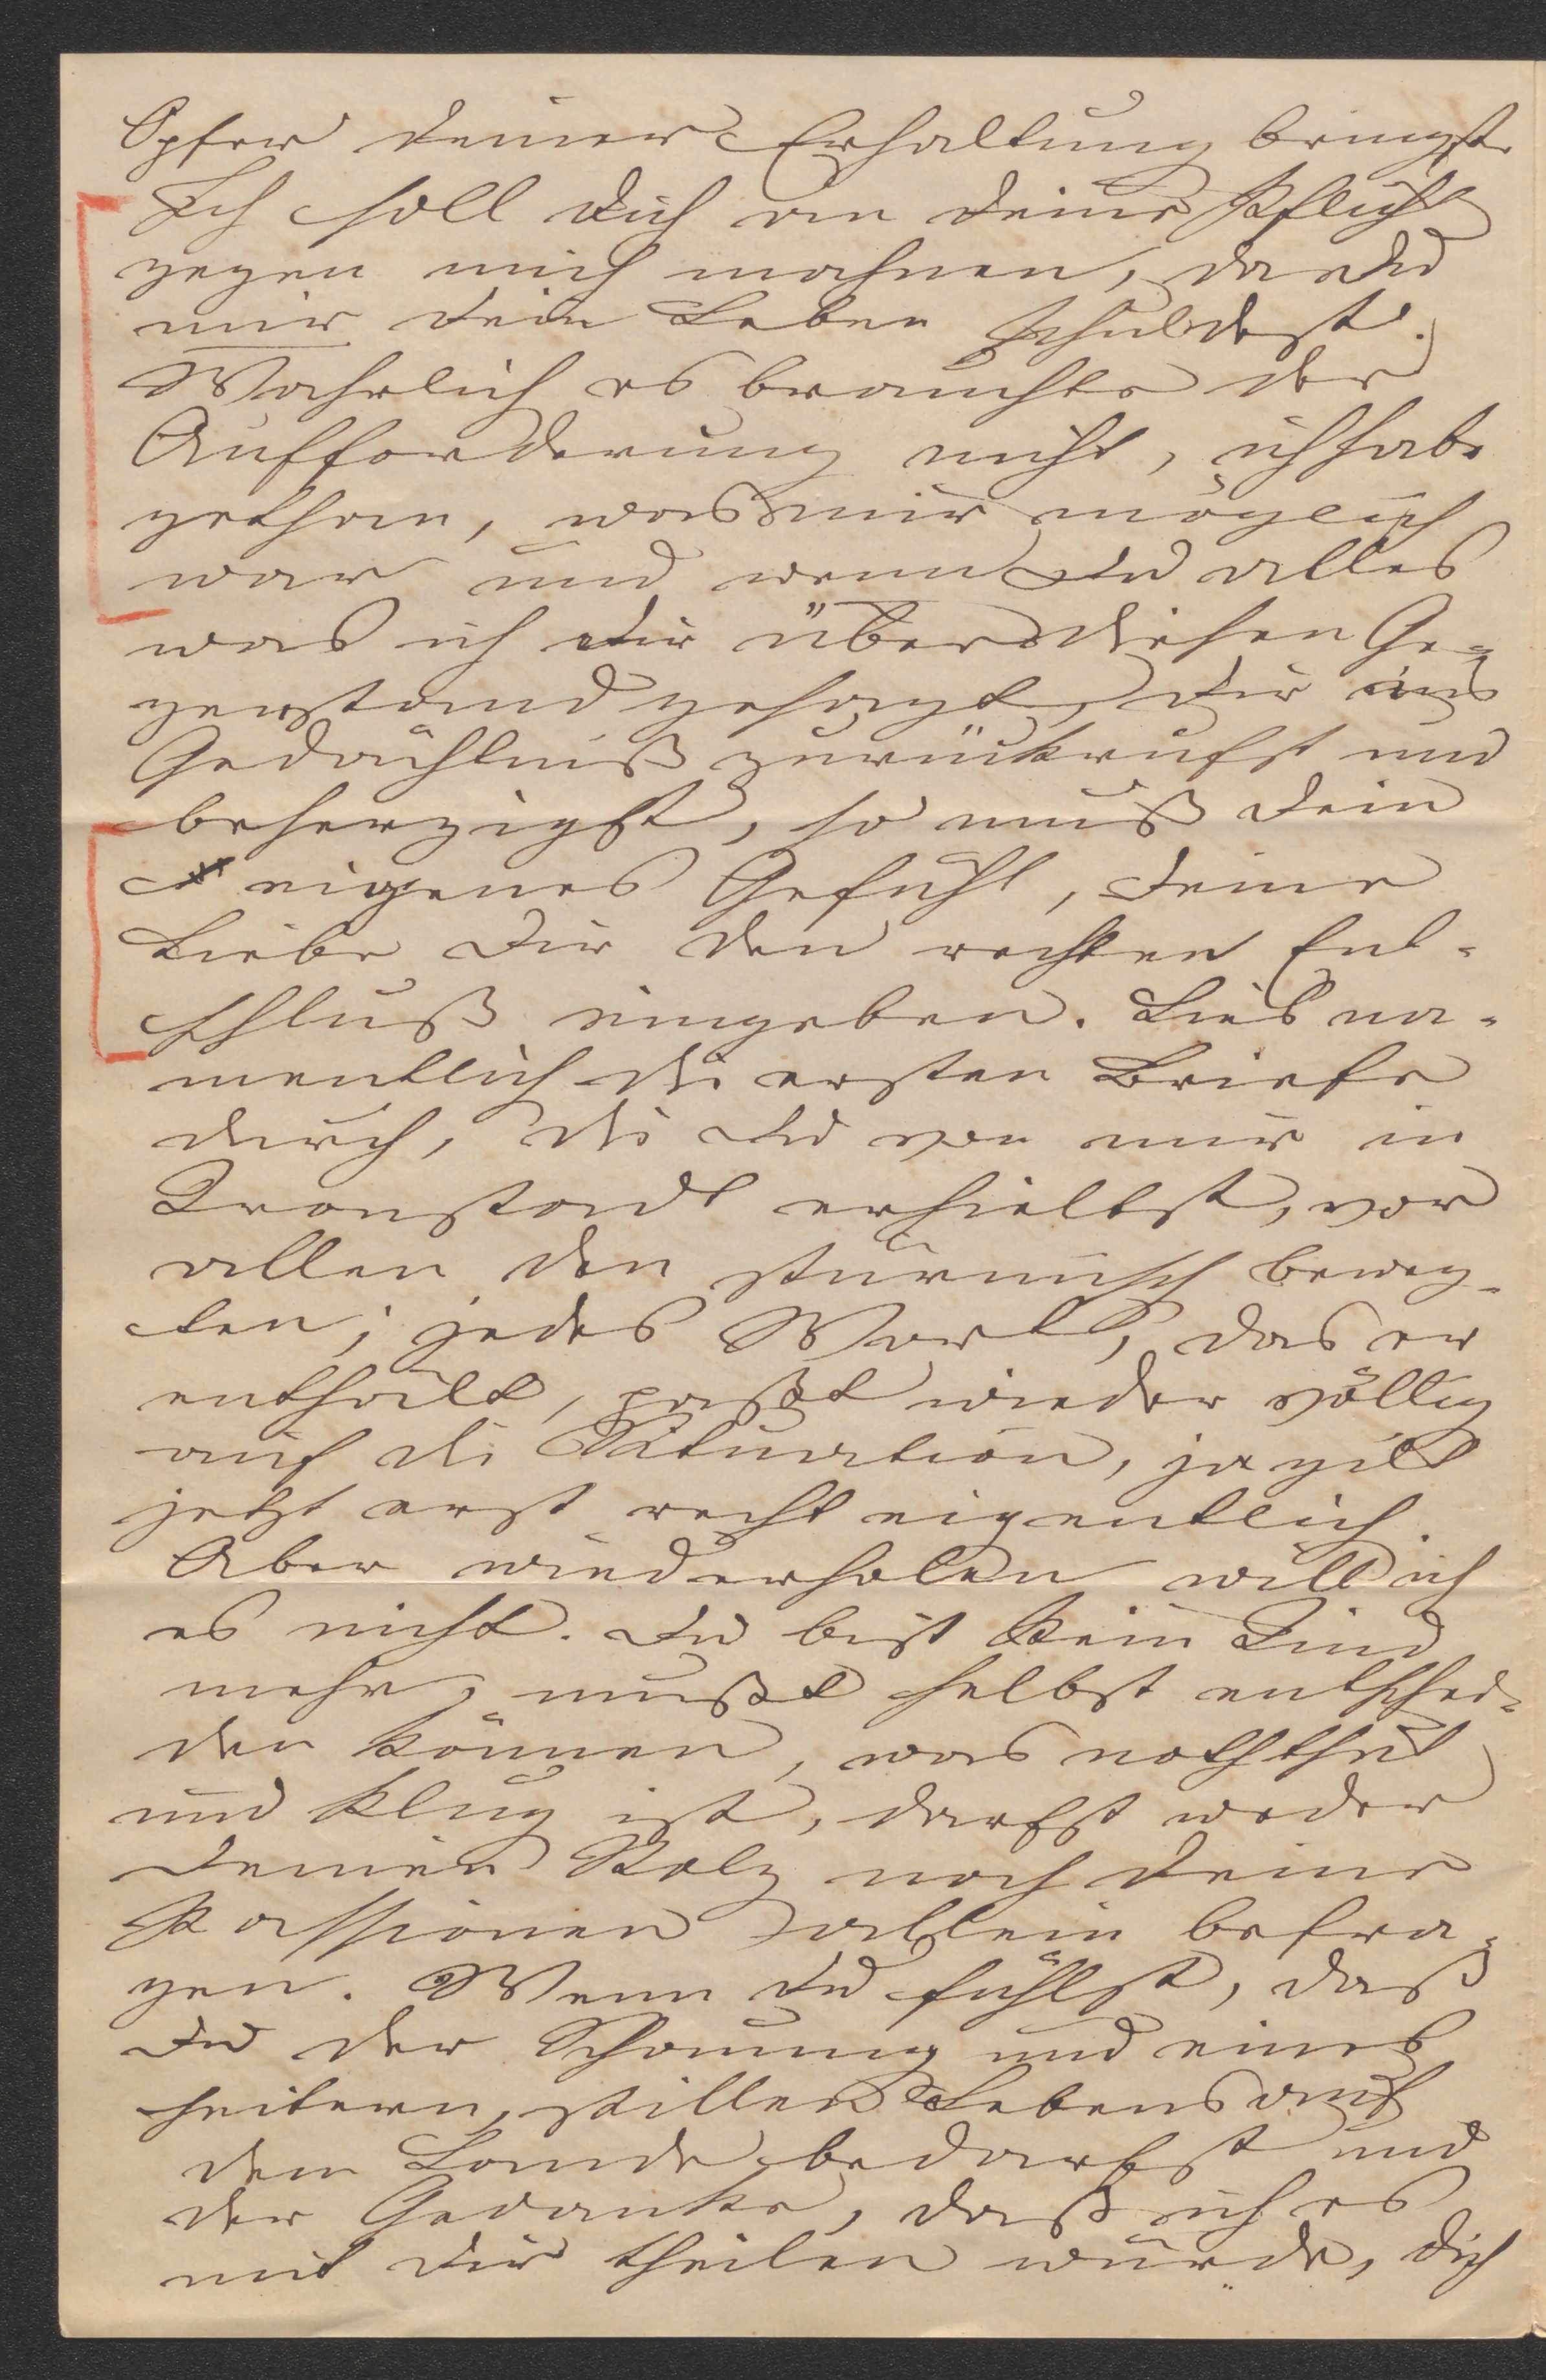 Opfer Deiner Erhaltung bringst.
Ich soll Dich an Deine Pflicht
gegen mich mahnen, da Du
mir Dein Leben schuldest.
Wahrlich es brauchte der
Aufforderung nicht, ich habe
gethan, was mir möglich
war und wenn Du alles
was ich Dir über diesen Ge-
genstand gesagt, Dir ins
Gedächtniß zurückrufst und
beherzigst, so muß Dein
eigenes Gefühl, Deine
Liebe Dir den rechten Ent-
schluß eingeben. Lies na-
mentlich die ersten Briefe
durch, die Du von mir in
Kronstadt erhieltst, vor
allen den stürmisch beweg-
ten; jedes Wort, das er
enthält, paßt wieder völlig
auf die Situation, ja gilt
jetzt erst recht eigentlich.
Aber wiederholen will ich
es nicht. Du bist kein Kind
mehr, mußt selbst entschei-
den können, was noththut
und klug ist, darfst weder
Deinen Stolz noch Deine
Passionen allein befra-
gen. Wenn Du fühlst, daß
Du der Schonung und eines
heitern, stillen Lebens auf
dem Lande bedarfst und
der Gedanke, daß ich es
mit Dir theilen würde, Dich